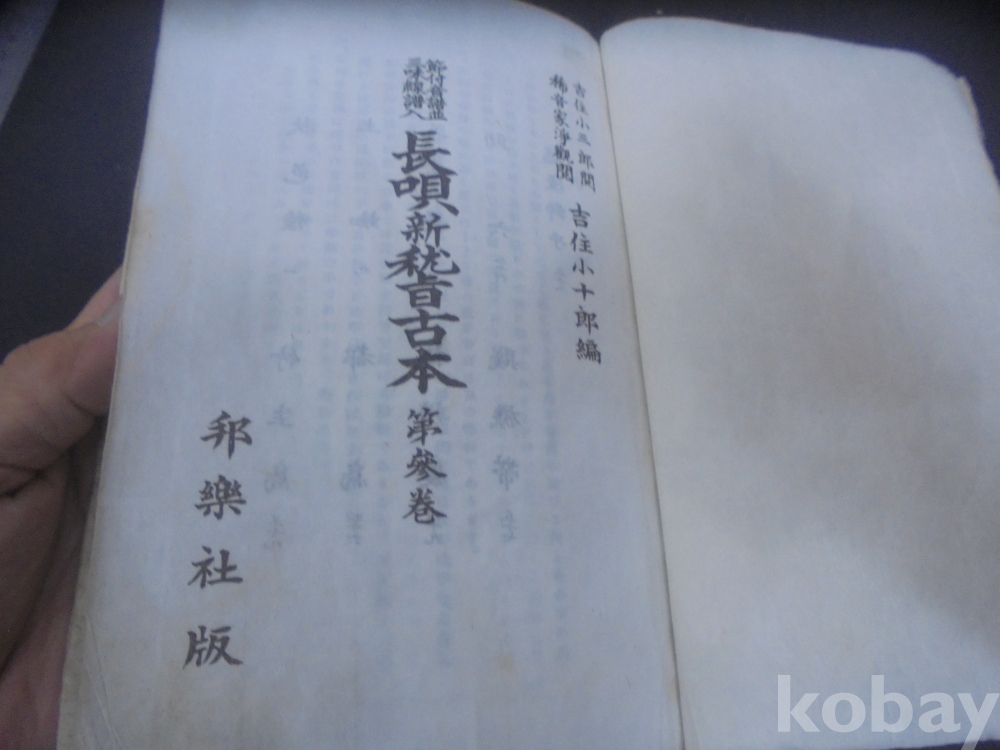 吉住小三郎閲
稀音家淨觀閲
吉住小十郎編
節付音譜並
三味線譜入
長唄新稽古本 第參卷
邦樂社版
kobay